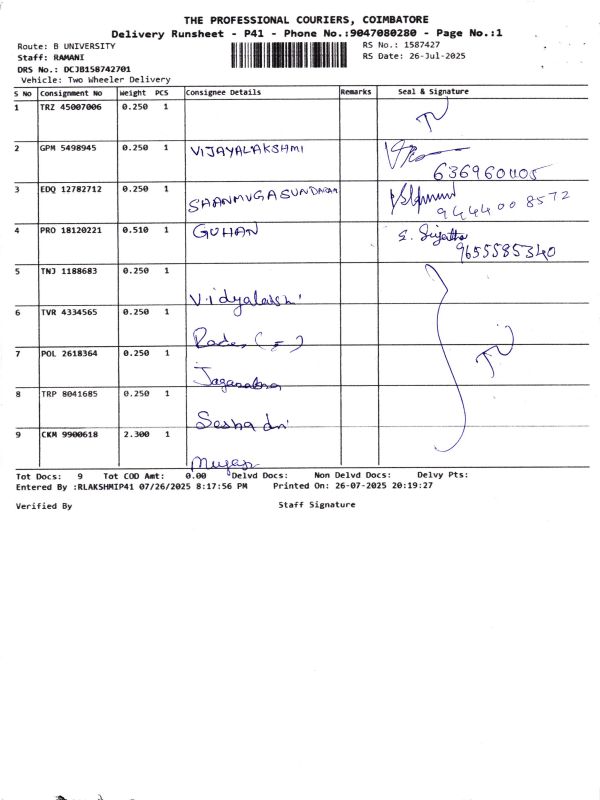 THE PROFESSIONAL COURIERS, COIMBATORE
Delivery Runsheet - P41 - Phone No.:9047080280 - Page No.:1
Route: B UNIVERSITY RS No.: 1587427
Staff: RAMANI RS Date: 26-Jul-2025
DRS No.: DCJB158742701
Vehicle: Two Wheeler Delivery
S No Consignment No Weight PCS Consignee Details Remarks Seal & Signature
1 TRZ 45007006 0.250 1
2 GPM 5498945 0.250 1 VIJAYALAKSHMI
3 EDQ 12782712 0.250 1 SHANMUGASUNDARAM 9444008572
4 PRO 18120221 0.510 1 GUHAN 9655585340
5 TNJ 1188683 0.250 1 Vidyalakshi
6 TVR 4334565 0.250 1
7 POL 2618364 0.250 1
8 TRP 8041685 0.250 1 Seshadri
9 CKM 9900618 2.300 1
Tot Docs: 9 Tot COD Amt: 0.00 Delvd Docs: Non Delvd Docs: Delvy Pts:
Entered By :RLAKSHMIP41 07/26/2025 8:17:56 PM Printed On: 26-07-2025 20:19:27
Verified By Staff Signature